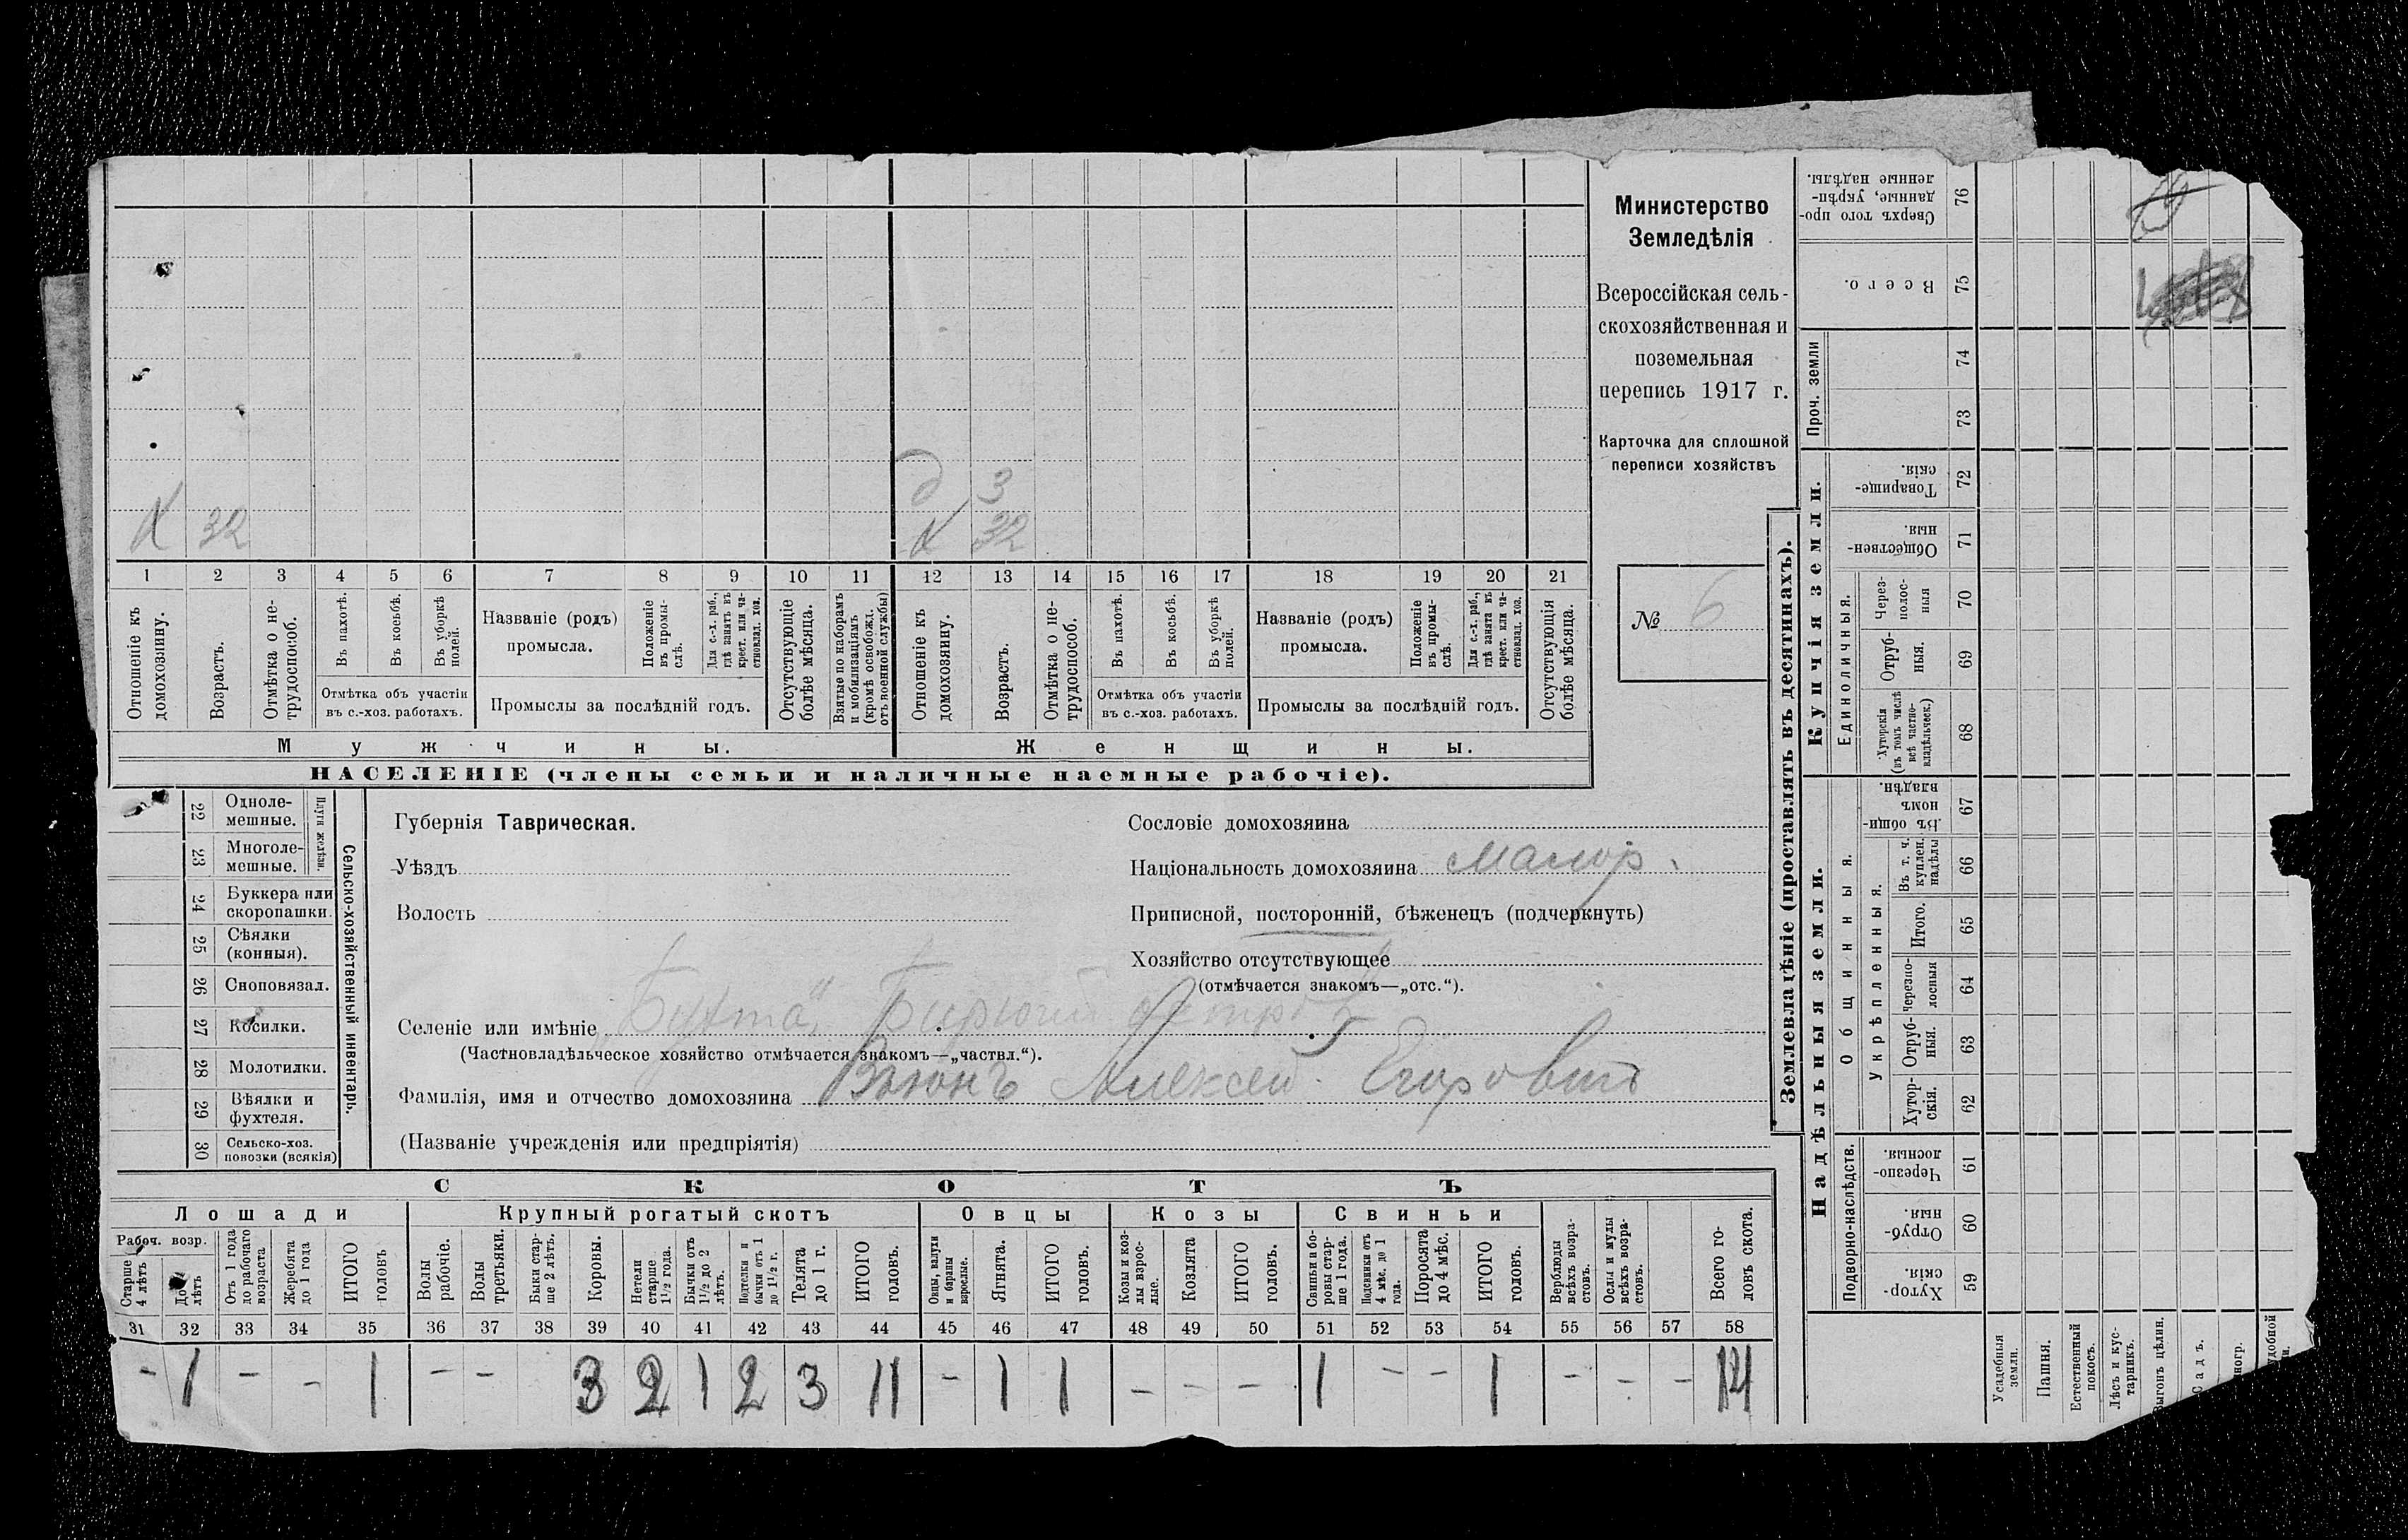 Министерство
Земледѣлія
Всероссійская сель-
скохозяйственная и
поземельная
перепись 1917 г.
Карточка для сплошной
переписи хозяйствъ
№ 6
д 3
х 32
х 32
1 2 3 4 5 6 7 8 9 10 11 12 13 14 15 16 17 18 19 20 21
Отношеніе къ домохозяину.
Возрастъ.
Отмѣтка о не-трудоспособ.
Въ пахотѣ.
Въ косьбѣ.
Въ уборкѣ полей.
Отмѣтка объ участіи
въ с.-хоз. работахъ.
Названіе (родъ)
промысла.
Положеніе въ промы-слѣ.
Для с.-х. раб., гдѣ занятъ въ крест. или ча-стновлад. хоз.
Промыслы за послѣдній годъ.
Отсутствующіе болѣе мѣсяца.
Взятые по наборамъ и мобилизаціямъ (кромѣ освобожд. отъ военной службы)
Отношеніе къ домохозяину.
Возрастъ.
Отмѣтка о не-трудоспособ.
Въ пахотѣ.
Въ косьбѣ.
Въ уборкѣ полей.
Отмѣтка объ участіи
въ с.-хоз. работахъ.
Названіе (родъ)
промысла.
Положеніе въ промы-слѣ.
Для с.-х. раб., гдѣ занята въ крест. или ча-стновлад. хоз.
Промыслы за послѣдній годъ.
Отсутствующія болѣе мѣсяца.
Мужчины.
Женщины.
НАСЕЛЕНІЕ (члены семьи и наличные наемные рабочіе).
Сельско-хозяйственный инвентарь.
Плуги желѣзн.
22 Одноле-мешные.
23 Многоле-мешные.
24 Буккера или скоропашки.
25 Сѣялки (конныя).
26 Сноповязал.
27 Косилки.
28 Молотилки.
29 Вѣялки и фухтеля.
30 Сельско-хоз. повозки (всякія)
Губернія Таврическая.
Уѣздъ
Волость
Сословіе домохозяина
Національность домохозяина Малор.
Приписной, посторонній, бѣженецъ (подчеркнуть)
Хозяйство отсутствующее
(отмѣчается знакомъ—„отс.“).
Селеніе или имѣніе „Бухта“ Бирючій островъ
(Частновладѣльческое хозяйство отмѣчается знакомъ—„частвл.“).
Фамилія, имя и отчество домохозяина Вьюнъ Алексей Егоровичъ
(Названіе учрежденія или предпріятія)
СКОТЪ
Лошади
Крупный рогатый скотъ
Овцы
Козы
Свиньи
Рабоч. возр.
Старше 4 лѣтъ
До лѣтъ
Отъ 1 года до рабочаго возраста
Жеребята до 1 года
ИТОГО головъ
Волы рабочіе.
Волы третьяки.
Быки стар-ше 2 лѣтъ.
Коровы.
Нетели старше 1½ года.
Бычки отъ 1½ до 2 лѣтъ.
Подтелки и бычки отъ 1 до 1½ г.
Телята до 1 г.
ИТОГО головъ.
Овцы, валухи и бараны взрослые.
Ягнята.
ИТОГО головъ.
Козы и коз-лы взрос-лые.
Козлята
ИТОГО головъ.
Свиньи и бо-ровы стар-ше 1 года.
Подсвинки отъ 4 мѣс. до 1 года.
Поросята до 4 мѣс.
ИТОГО головъ.
Верблюды всѣхъ возра-стовъ.
Ослы и мулы всѣхъ возра-стовъ.
Всего го-ловъ скота.
31 32 33 34 35 36 37 38 39 40 41 42 43 44 45 46 47 48 49 50 51 52 53 54 55 56 57 58
- 1 - - 1 - - 3 2 1 2 3 11 - 1 1 - - - 1 - - 1 - - - 14
Землевладѣніе (проставлять въ десятинахъ).
Купчія земли.
Надѣльныя земли.
Проч. земли
Единоличныя.
Общинныя.
Укрѣпленныя.
Подворно-наслѣдств.
Сверхъ того про-данные, укрѣп-ленные надѣлы. 76
Всего. 75
74
73
Товарище-скія. 72
Обществен-ныя. 71
Через-полос-ныя 70
Отруб-ныя. 69
Хуторскія (въ томъ числѣ всѣ частно-владѣльческ.) 68
Въ общин-номъ владѣн. 67
Въ т. ч. куплен. надѣлы 66
Итого. 65
Черезпо-лосныя 64
Отруб-ныя. 63
Хутор-скія. 62
Черезпо-лосныя. 61
Отруб-ныя. 60
Хутор-скія 59
Усадебныя земли.
Пашня.
Естественный покосъ.
Лѣсъ и кус-тарникъ.
Выгонъ цѣлин.
Садъ.
ногр.
удобной